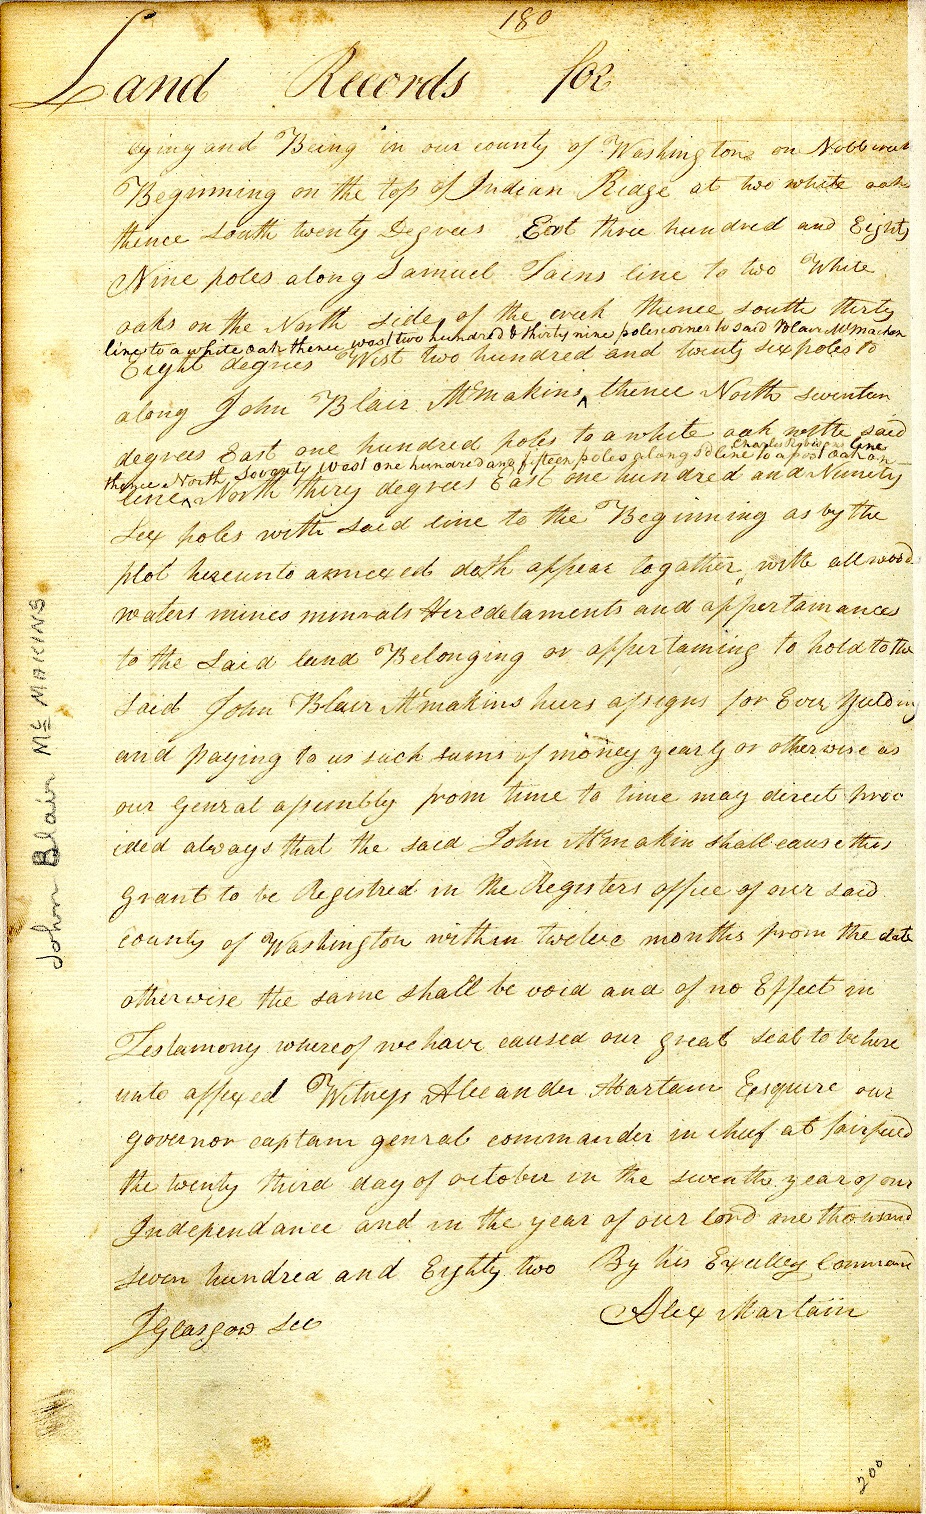 180
Land Records for
lying and Being in our county of Washington on Nobb creek
Beginning on the top of Indian Ridge at two white oaks
thence South twenty Degrees East three hundred and Eighty
Nine poles along Samuel Sains line to two White
oaks on the North side of the creek thence south thirty
line to a white oak thence west two hundred & thirty nine poles corner to said Blair McMackin
Eight degrees West two hundred and twenty six poles to
along John Blair Mcmakins ^ thence North seventeen
degrees East one hundred poles to a white oak withe said
Charles line
thence North Seventy west one hundred and fifteen poles along sd line to a post oak on
line ^ North thiry degrees East one hundred and Ninnity
Sex poles with said line to the Beginning as by the
plot hereunto annexed doth appear togather withe all wood
waters mines minrals Heredetaments and appertainances
to the Said land Belonging or appertaining to hold to the
said John Blair Mcmakins heirs assigns for Ever yulding
and paying to us such sums of money yearly or otherwise as
our genral assembly from time to time may direct prov
ided always that the said John Mcmakin shall cause this
grant to be Registred in the Registers office of our said
county of Washington within twelve months from the date
otherwise the same shall be void and of no Effect in
Testamony whereof we have caused our great seal to be here
unto affixed Witness Alexander Martain Esquire our
governor captain genral commander in chief at fairfield
the twenty third day of october in the seventh year of our
Independance and in the year of our lord one thousand
seven hundred and Eighty two By his Exelley Command
JGlasgow Sec Alex Martain
John Blair Mc MAKINS
200